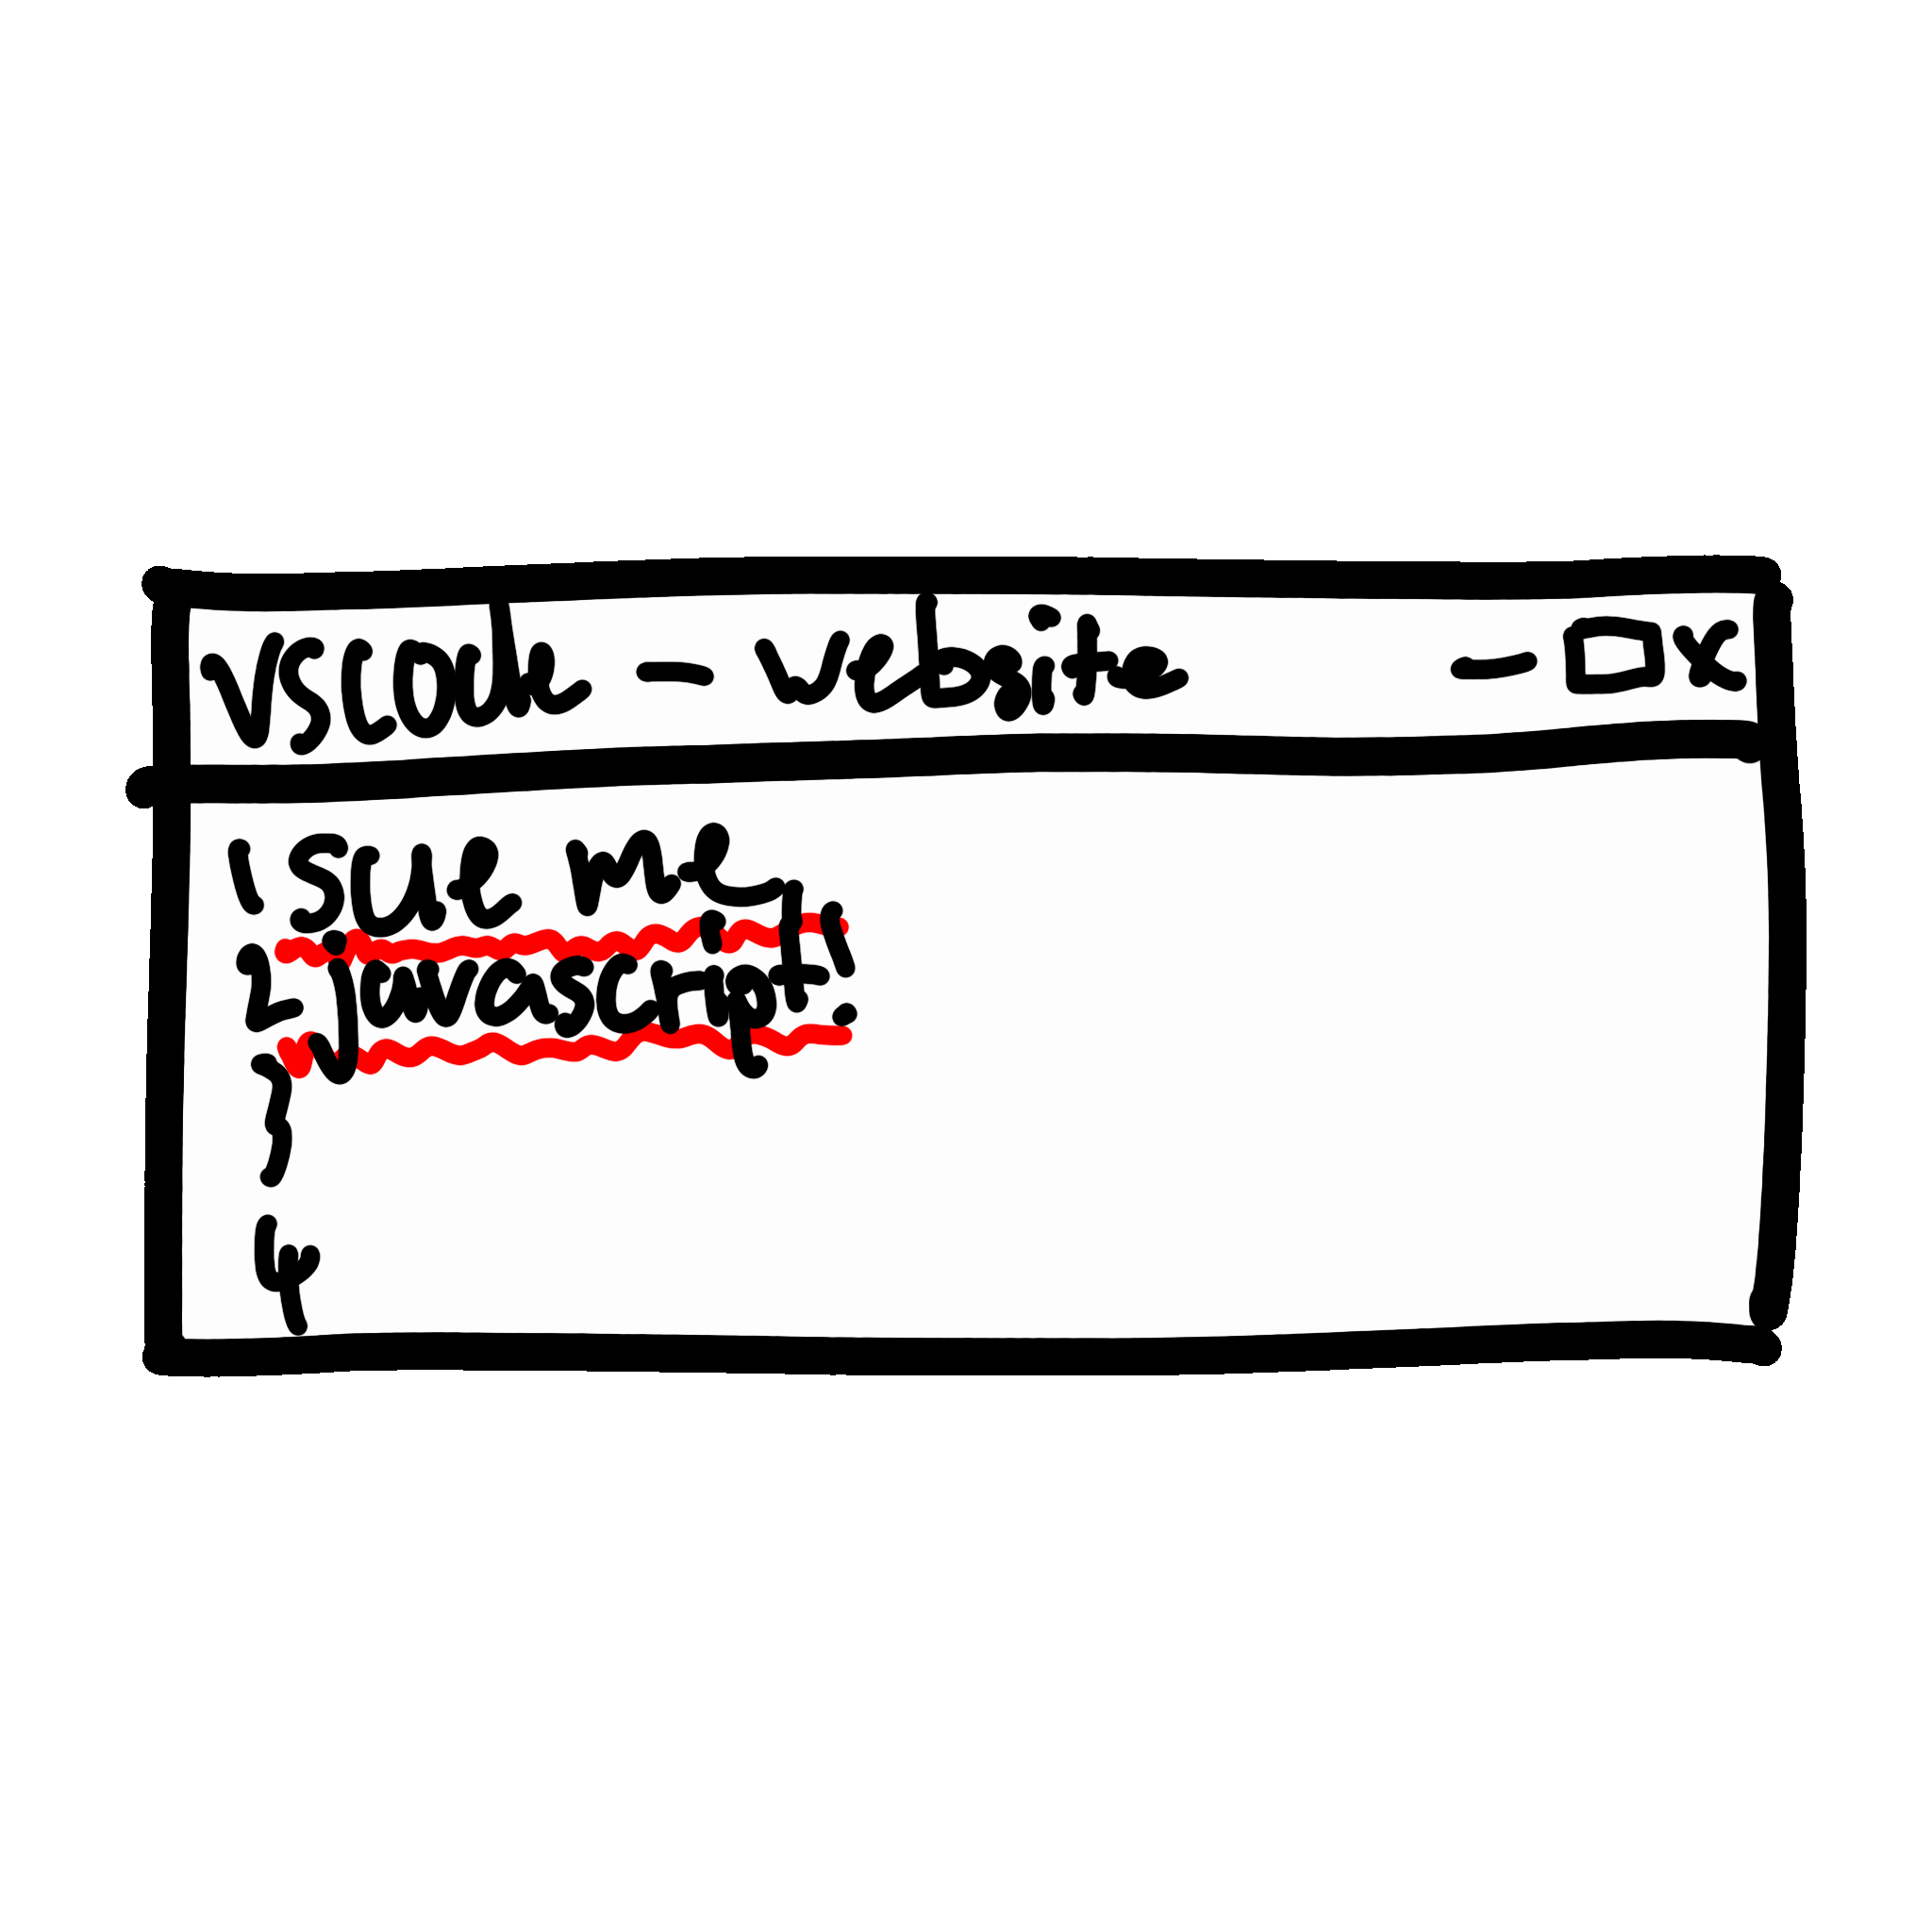 vscode - website - □ x
1 sue me
2 javascript!
3
4